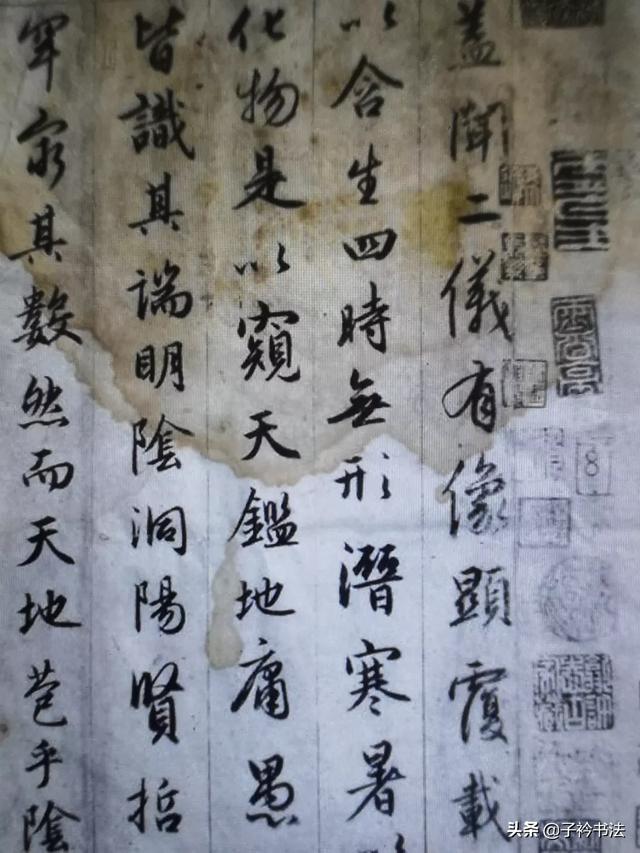 蓋聞二儀有像顯覆載
以含生四時無形潛寒暑以
化物是以窺天鑑地庸愚
皆識其端明陰洞陽賢哲
罕窮其數然而天地苞乎陰
头条 @子衿书法